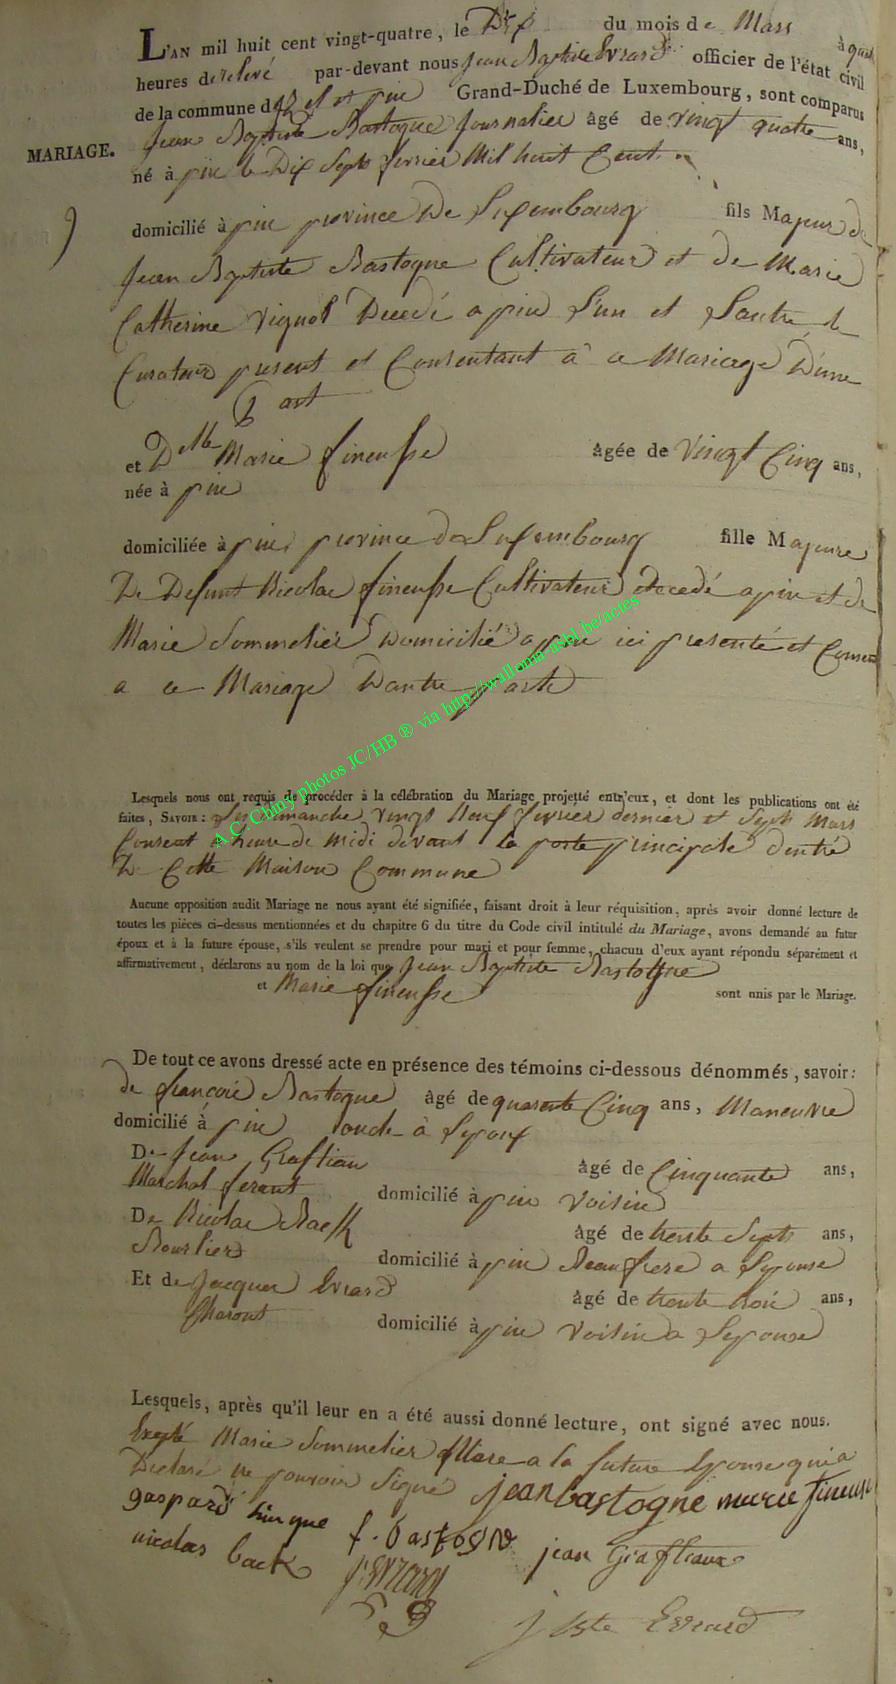 L'AN mil huit cent vingt-quatre, le Dix du mois de Mars à quatre
heures de relevé par-devant nous Jean Baptiste Evrard officier de l'état civil
de la commune d et pin Grand-Duché de Luxembourg, sont comparus
MARIAGE. Jean Baptiste Bastogne Journalier âgé de vingt quatre ans,
né à pin le Dix Sept fevrier Mil huit Cent
domicilié à pin province De Luxembourg fils Majeur de
Jean Baptiste Bastogne Cultivateur et de Marie
Catherine Vignol Decedé a pin L'un et Lautre le
Curateur present et Consentant a ce Mariage D'une
part
et Delle Marie fineusse âgée de Vingt Cinq ans,
née à pin
domiciliée à pin province de Luxembourg fille Majeure
De Defunt Nicolae fineusse Cultivateur decedé a pin et de
Marie Sommelier Domicilié a pin ici presente et Consen
a ce Mariage Dautre parte
Lesquels nous ont requis de procéder à la célébration du Mariage projetté entr'eux, et dont les publications ont été
faites, SAVOIR : Dimanche vingt Neuf fevrier dernier et Sept Mars
heure de midi devant la porte principale dentré
De Cette Maison Commune
Aucune opposition audit Mariage ne nous ayant été signifiée, faisant droit à leur réquisition, après avoir donné lecture de
toutes les pièces ci-dessus mentionnées et du chapitre 6 du titre du Code civil intitulé du Mariage, avons demandé au futur
époux et à la future épouse, s'ils veulent se prendre pour mari et pour femme, chacun d'eux ayant répondu séparément et
affirmativement, déclarons au nom de la loi que Jean Baptiste Bastogne
et Marie fineusse sont unis par le Mariage.
De tout ce avons dressé acte en présence des témoins ci-dessous dénommés, savoir:
de françois Bastogne âgé de quarente Cinq ans, Maneuvre
domicilié à pin oncle a Lepoux
De Jean Graftiau âgé de Cinquante ans,
Marchal ferant domicilié à pin Voisin
De Nicolae Back âgé de trente Sept ans,
Bourlier domicilié à pin Beau frere a Lepouse
Et de Jacques Evrard âgé de trente trois ans,
Charont domicilié à pin Voisin a Lepouse
Lesquels, après qu'il leur en a été aussi donné lecture, ont signé avec nous.
Excepté Marie Sommelier Mere a la future Epouse qui a
Declaré ne pouvoir Signé jean bastogne marie fineuse
gaspard
f. bastogne
nicolas back
J. Evrard
jean Graftiaux
J Bste Evrard
A.C. Chiny photos JC/HB ® via http://wallonia-asbl.be/actes